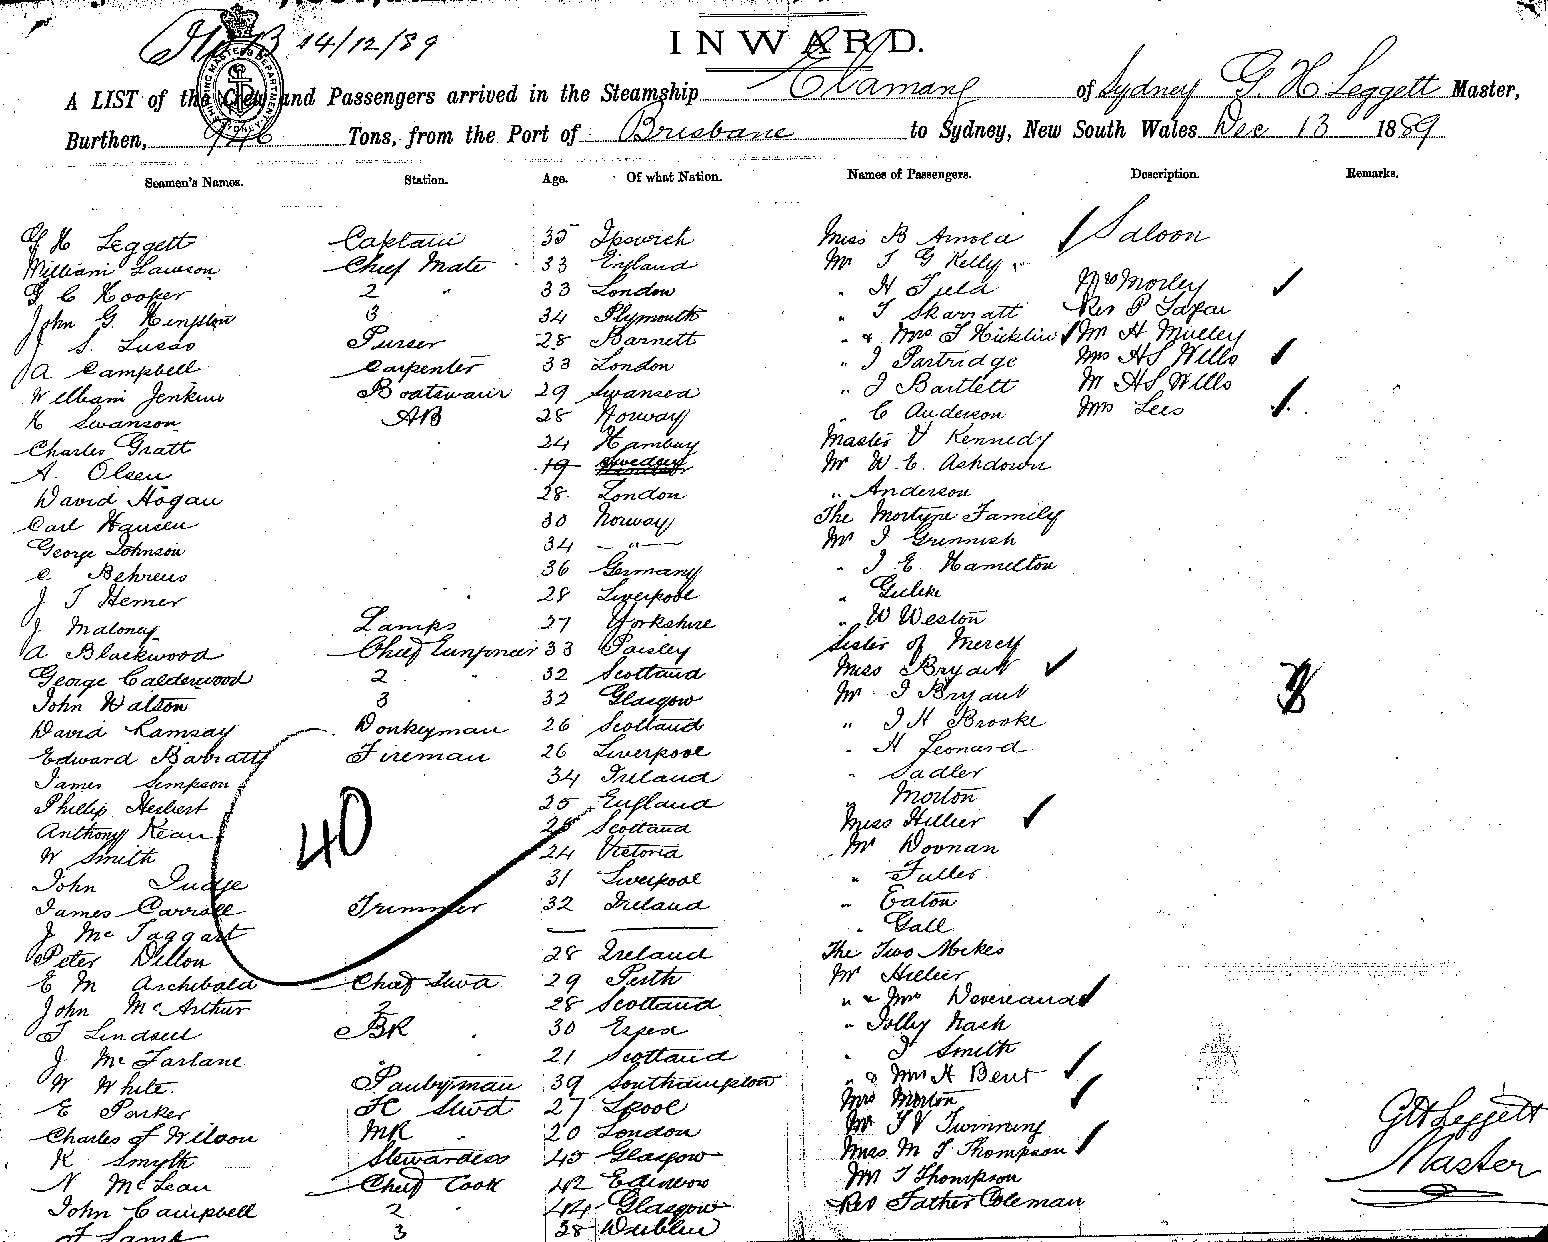 14/12/89
INWARD.
A LIST of the Crew and Passengers arrived in the Steamship Elamang of Sydney G H Leggett Master,
Burthen, 946 Tons, from the Port of Brisbane to Sydney, New South Wales Dec 13 1889
Seamen's Names. Station. Age. Of what Nation. Names of Passengers. Description. Remarks.
G H Leggett Captain 35 Ipswich Miss B Arnold Saloon
William Lawson Chief Mate 33 England Mr T G Kelly
G C Hooper 2 " 33 London " H Mrs Morley
John G. 3 34 Plymouth " T Skarratt Rev P
J S. Lusso Purser 28 Barnett " & Mrs T Hicklin Mr H Mulley
A Campbell Carpenter 33 London " J Partridge Mrs HS Wills
William Jenkins Boatswain 29 Swansea " J Bartlett Mr HS Wills
H Swanson AB 28 Norway " C Anderson Mrs Lees
Charles Gratt 24 Hambuy Master V Kennedy
A. Olsen 19 Mr W E. Ashdown
David Hogan 28 London " Anderson
Carl Hansen 30 Norway The Mortyne Family
George Johnson 34 — " — Mr J Grinnish
C. Behrens 36 Germany " J E Hamelton
J T Hemer 28 Liverpool "
J Maloney Lamps 27 Yorkshire " W Weston
A Blackwood Chief Enginner 33 Paisley Sister of Mercy
George Calderwood 2 " 32 Scotland Miss Bryant
John Watson 3 32 Glasgow Mr J Bryant
David Ramsay Donkeyman 26 Scotland " J H Brooke
Edward Babratt Fireman 26 Liverpool " H Leonard
James Simpson 34 Ireland " Sadler
Phillip Herbert 25 England " Morton
Anthony Kean 28 Scotland Miss Hillier
W Smith 24 Victoria Mr Doonan
40
John Judge 31 Liverpool " Fuller
James Carroll Trimmer 32 Ireland " Eaton
J McTaggart — — " Gall
Peter Dillon 28 Ireland The Two Mikes
E M Archibald Chief Stwd 29 Perth Mr Hillier
John McArthur 2 28 Scotland " & Mrs Devereaud
T Lindsell BR 30 Essex " Jolly Nash
J McFarlane 21 Scotland " T Smith
W White. Pantryman 39 Southampton " & Mrs H Bent
E Parker FC Stwd 27 Lpool Mrs Morton
Charles J Wilson MR 20 London Mr T V Twinning
K Smyth Stewardess 45 Glasgow Miss M J Thompson
N McLean Chief Cook 42 Mr T Thompson
John Campbell 2 44 Glasgow Rev Father Coleman
3 38 Dublin
GH Leggett
Master